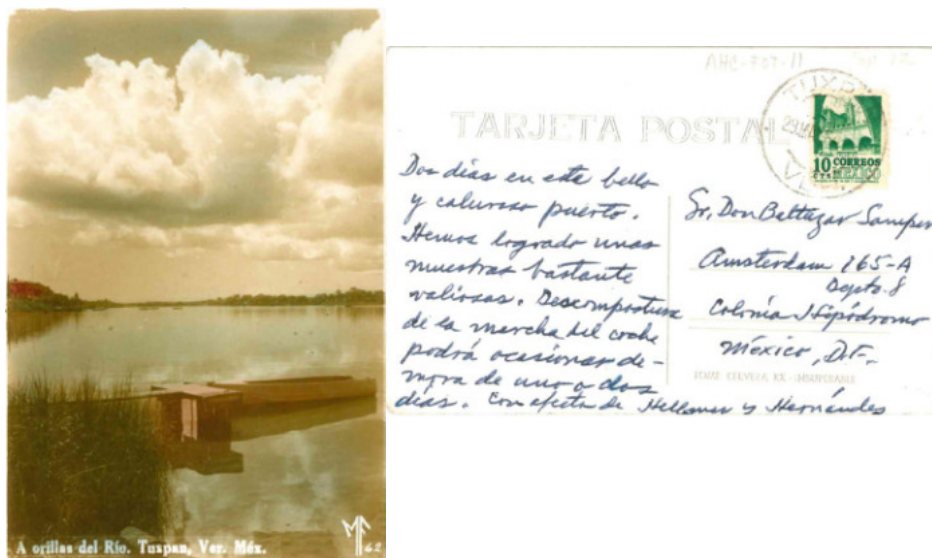 A orillas del Río. Tuxpan, Ver. Méx.
MF
62
AHC-707-11
TARJETA POSTAL
TUXP
VER
10 CORREOS
CTS MEXICO
Dos días en este bello
y caluroso puerto.
Hemos logrado unas
muestras bastante
valiosas. Descompostura
de la marcha del coche
podrá ocasionar de-
mora de uno o dos
días. Con afecto de Hellmer y Hernández
Sr. Don Baltazar Samper
Amsterdam 165-A
Depto. 8
Colonia Hipódromo
México, D.F.